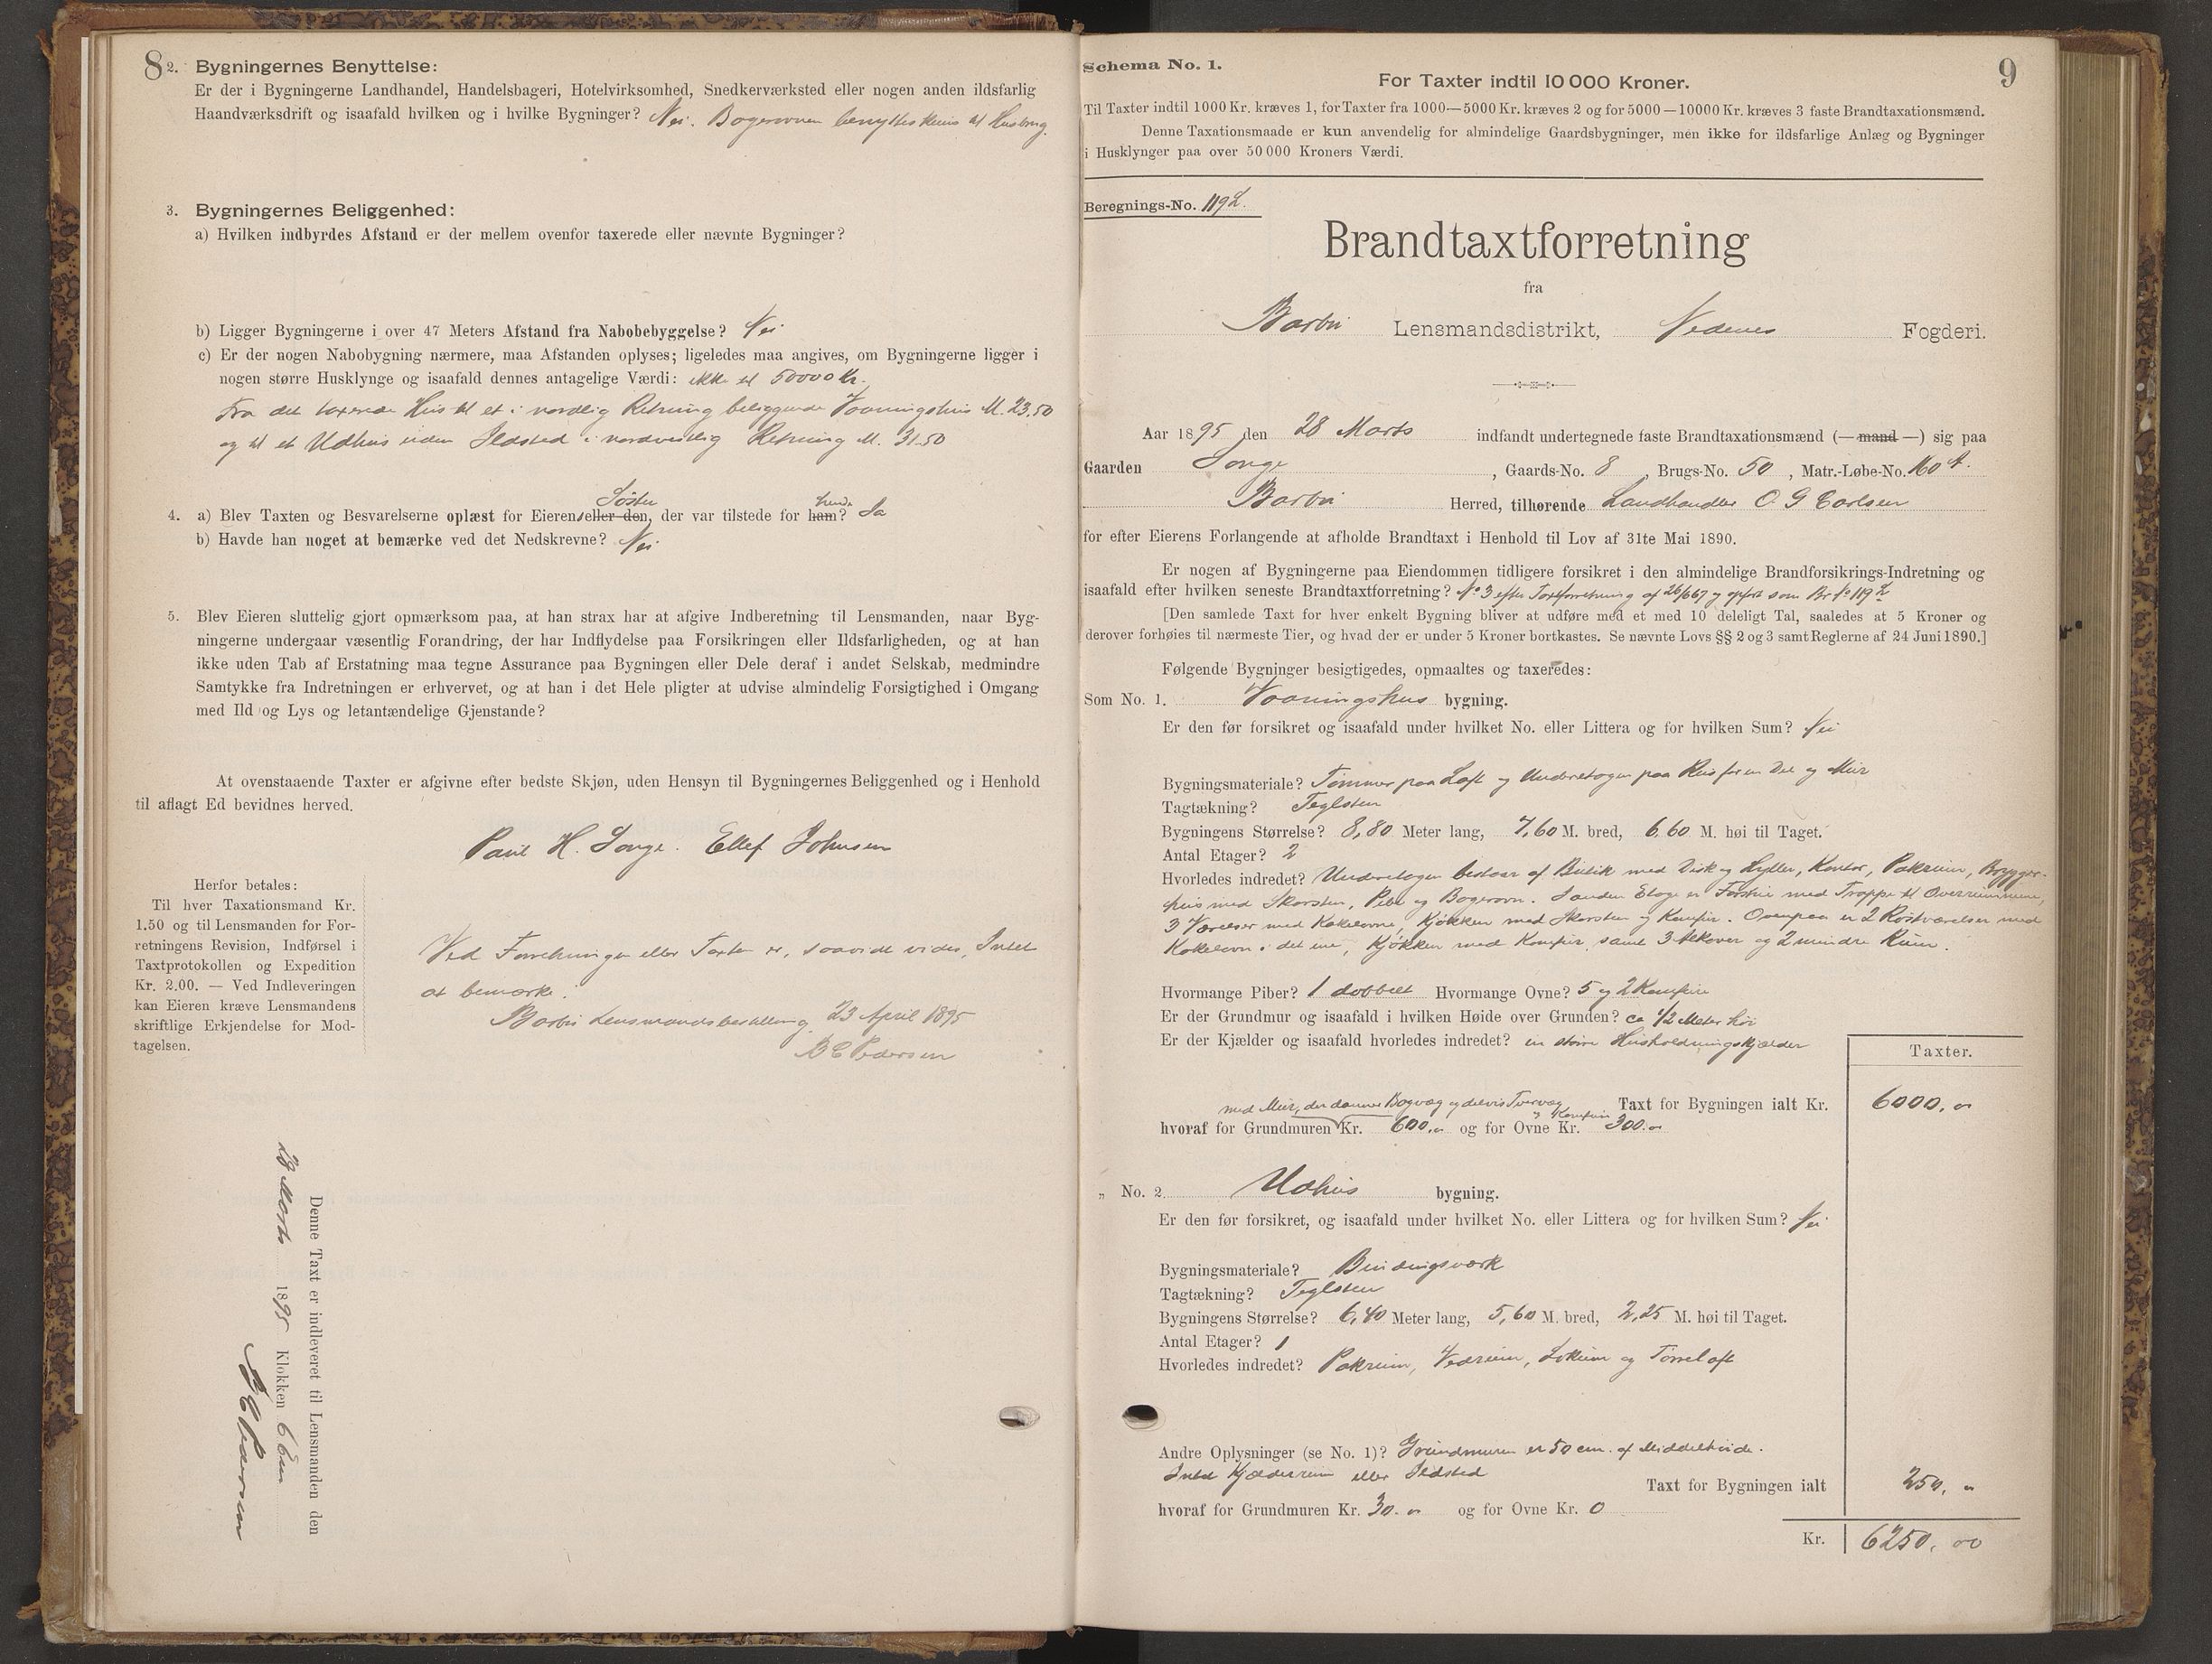 8
2. Bygningernes Benyttelse:
Er der i Bygningerne Landhandel, Handelsbageri, Hotelvirksomhed, Snedkerværksted eller nogen anden ildsfarlig
Haandværksdrift og isaafald hvilken og i hvilke Bygninger? Nei. Bagerovnen benyttes kuns til Husbrug.
3. Bygningernes Beliggenhed:
a) Hvilken indbyrdes Afstand er der mellem ovenfor taxerede eller nævnte Bygninger?
b) Ligger Bygningerne i over 47 Meters Afstand fra Nabobebyggelse? Nei
c) Er der nogen Nabobygning nærmere, maa Afstanden oplyses; ligeledes maa angives, om Bygningerne ligger i
nogen større Husklynge og isaafald dennes antagelige Værdi: ikke til 50000 Kr.
Fra det taxerede Hus til et i nordlig Retning beliggende Vaaningshus M. 23.50
og til et Udhus uden Ildsted i nordvestlig Retning M. 31.50
4. a) Blev Taxten og Besvarelserne oplæst for Eierens Søster eller den, der var tilstede for ham? hende Ja
b) Havde han noget at bemærke ved det Nedskrevne? Nei
5. Blev Eieren sluttelig gjort opmærksom paa, at han strax har at afgive Indberetning til Lensmanden, naar Byg-
ningerne undergaar væsentlig Forandring, der har Indflydelse paa Forsikringen eller Ildsfarligheden, og at han
ikke uden Tab af Erstatning maa tegne Assurance paa Bygningen eller Dele deraf i andet Selskab, medmindre
Samtykke fra Indretningen er erhvervet, og at han i det Hele pligter at udvise almindelig Forsigtighed i Omgang
med Ild og Lys og letantændelige Gjenstande?
At ovenstaaende Taxter er afgivne efter bedste Skjøn, uden Hensyn til Bygningernes Beliggenhed og i Henhold
til aflagt Ed bevidnes herved.
Paul H. Songe. Ellef Johnsen
Herfor betales:
Til hver Taxationsmand Kr.
1.50 og til Lensmanden for For-
retningens Revision, Indførsel i
Taxtprotokollen og Expedition
Kr. 2.00. — Ved Indleveringen
kan Eieren kræve Lensmandens
skriftlige Erkjendelse for Mod-
tagelsen.
Ved Forretningen eller Taxten er, saavidt vides, Intet
at bemærke.
Barbu Lensmandsbestilling, 23 April 1895
B E Pedersen
Denne Taxt er indleveret til Lensmanden den
29 Marts 1895 Klokken 6 Em
B E Pedersen
9
Schema No. 1.
For Taxter indtil 10 000 Kroner.
Til Taxter indtil 1000 Kr. kræves 1, for Taxter fra 1000—5000 Kr. kræves 2 og for 5000—10000 Kr. kræves 3 faste Brandtaxationsmænd.
Denne Taxationsmaade er kun anvendelig for almindelige Gaardsbygninger, men ikke for ildsfarlige Anlæg og Bygninger
i Husklynger paa over 50 000 Kroners Værdi.
Beregnings-No. 119 L.
Brandtaxtforretning
fra
Barbu Lensmandsdistrikt, Nedenes Fogderi.
Aar 1895 den 28 Marts indfandt undertegnede faste Brandtaxationsmænd (— mand —) sig paa
Gaarden Songe, Gaards-No. 8, Brugs-No. 50, Matr.-Løbe-No. 160 A.
Barbu Herred, tilhørende Landhandler O. G Carlsen
for efter Eierens Forlangende at afholde Brandtaxt i Henhold til Lov af 31te Mai 1890.
Er nogen af Bygningerne paa Eiendommen tidligere forsikret i den almindelige Brandforsikrings-Indretning og
isaafald efter hvilken seneste Brandtaxtforretning? No 3 efter Taxtforretning af 26/667 og opført som Br. No 119 L
[Den samlede Taxt for hver enkelt Bygning bliver at udføre med et med 10 deleligt Tal, saaledes at 5 Kroner og
derover forhøies til nærmeste Tier, og hvad der er under 5 Kroner bortkastes. Se nævnte Lovs §§ 2 og 3 samt Reglerne af 24 Juni 1890.]
Følgende Bygninger besigtigedes, opmaaltes og taxeredes:
Som No. 1. Vaaningshus bygning.
Er den før forsikret og isaafald under hvilket No. eller Littera og for hvilken Sum? Nei
Bygningsmateriale? Tømmer paa Loft og Underetagen paa Hus for en Del og Mur
Tagtækning? Teglsten
Bygningens Størrelse? 8,80 Meter lang, 7,60 M. bred, 6,60 M. høi til Taget.
Antal Etager? 2
Hvorledes indredet? Underetagen bestaar af Butik med Disk og Hylder, Kontor, Pakrum, Brygger-
hus med Skorsten, Pibe og Bagerovn. I anden Etage er Forstue med Trappe til Overrummene,
3 Værelser med Kakelovne, Kjøkken med Skorsten og Komfur. Ovenpaa er 2 Kvistværelser med
Kakelovn i det ene, Kjøkken med Komfur, samt 3 Alkover og 2 mindre Rum.
Hvormange Piber? 1 dobbelt Hvormange Ovne? 5 og 2 Komfure
Er der Grundmur og isaafald i hvilken Høide over Grunden? ca 1/2 Meter høi
Er der Kjælder og isaafald hvorledes indredet? en større Husholdningskjælder
Taxter.
med Mur, der danner Bagvæg og delvis Tvervæg Taxt for Bygningen ialt Kr. 6000. "
hvoraf for Grundmuren Kr. 600. " og for Ovne og Komfure Kr. 300. "
" No. 2 Udhus bygning.
Er den før forsikret, og isaafald under hvilket No. eller Littera og for hvilken Sum? Nei
Bygningsmateriale? Bindingsværk
Tagtækning? Teglsten
Bygningens Størrelse? 6,40 Meter lang, 5,60 M. bred, 2,25 M. høi til Taget.
Antal Etager? 1
Hvorledes indredet? Pakrum, Vedrum, Lokum og Tørreloft
Andre Oplysninger (se No. 1)? Grundmuren er 50 cm. af Middelhøide.
Intet Kjælderrum eller Ildsted
Taxt for Bygningen ialt 250. "
hvoraf for Grundmuren Kr. 30. " og for Ovne Kr. 0
Kr. 6250. 00